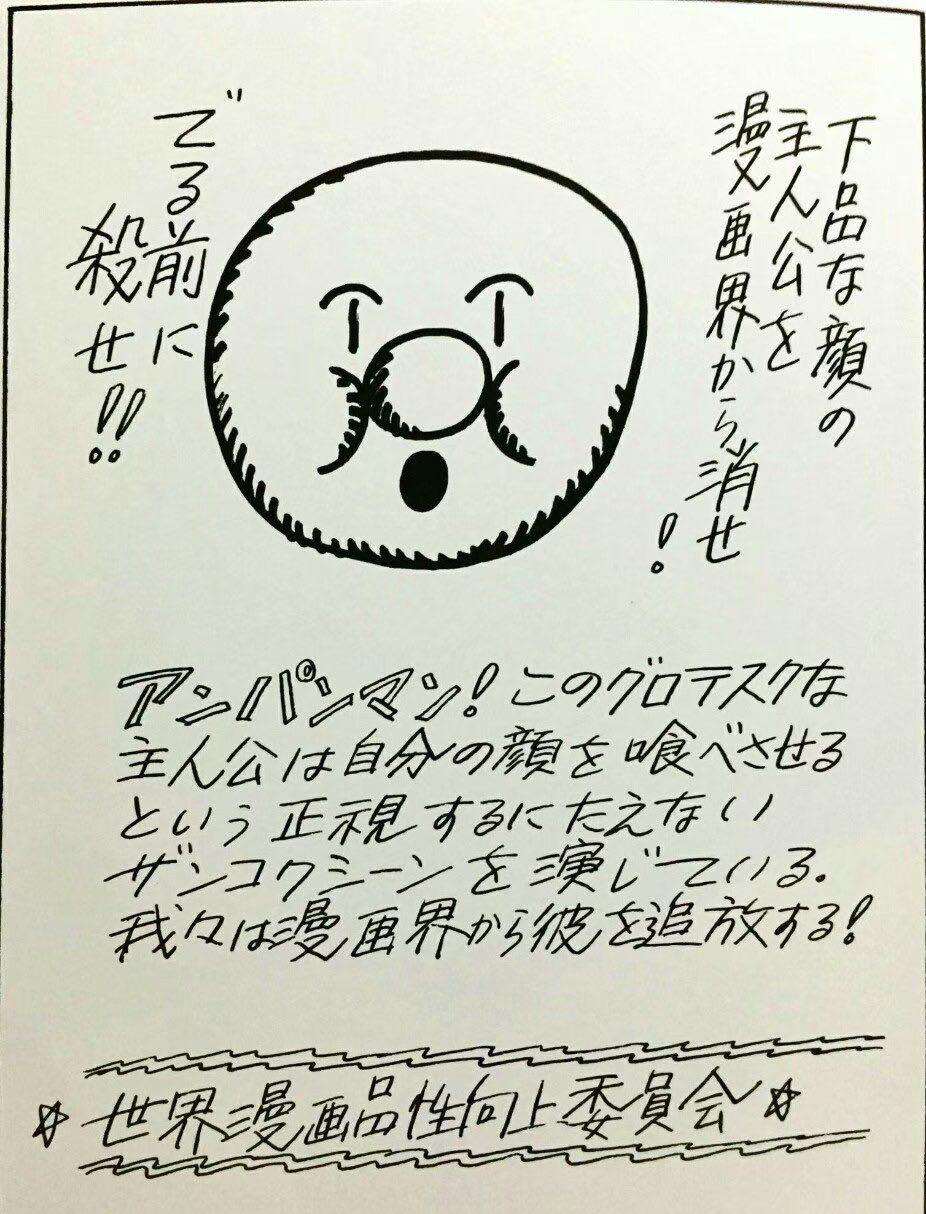 下品な顔の
主人公を
漫画界から消せ
!
でる前に
殺せ!!
アンパンマン!このグロテスクな
主人公は自分の顔を喰べさせる
という正視するにたえない
ザンコクシーンを演じている.
我々は漫画界から彼を追放する!
☆世界漫画品性向上委員会☆